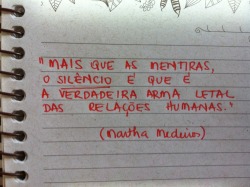 "MAIS QUE AS MENTIRAS,
O SILÊNCIO É QUE É
A VERDADEIRA ARMA LETAL
DAS RELAÇÕES HUMANAS."
(Martha Medeiros)